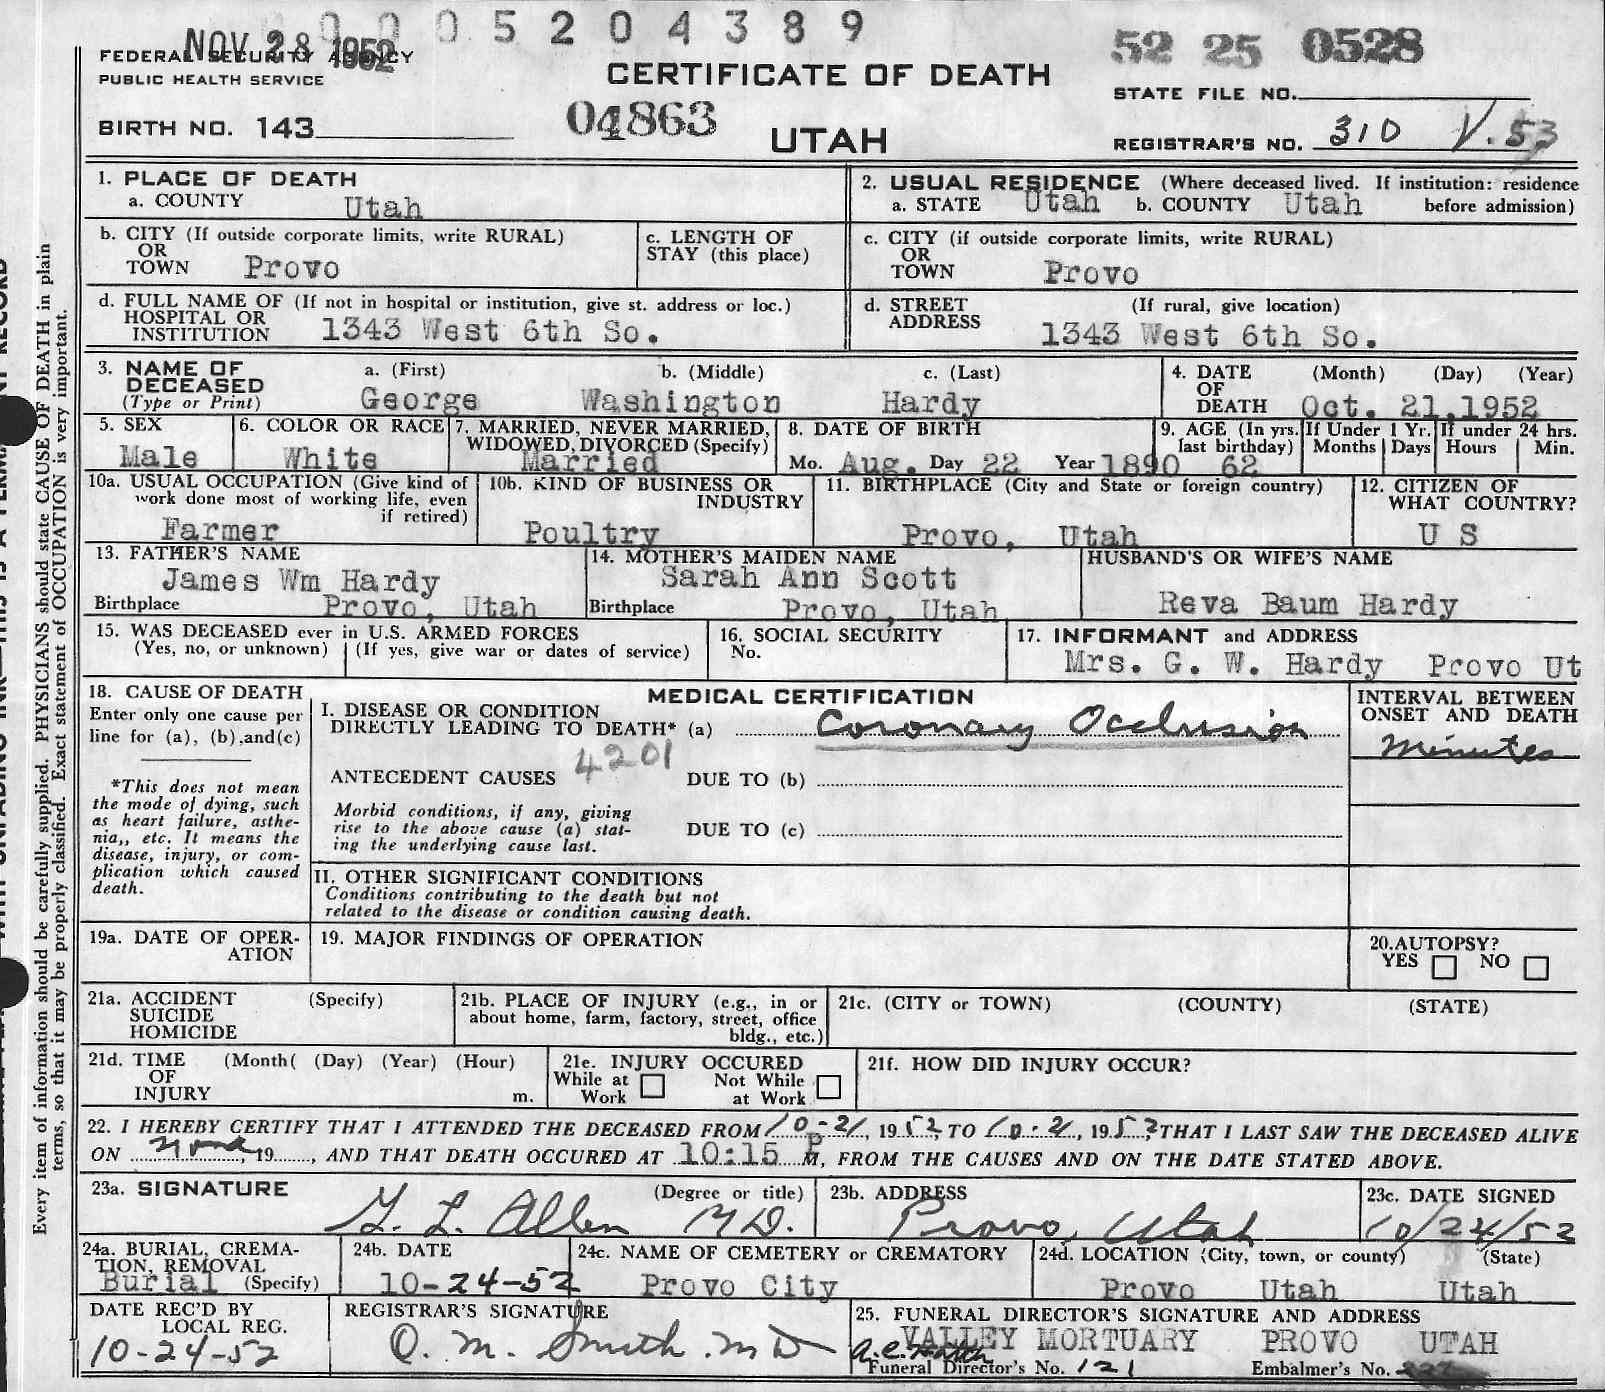 0 0 0 5 2 0 4 3 8 9
NOV 28 1952
52 25 0528
FEDERAL SECURITY AGENCY
PUBLIC HEALTH SERVICE
CERTIFICATE OF DEATH
STATE FILE NO.
BIRTH NO. 143
04863
UTAH
REGISTRAR'S NO. 310 V.53
1. PLACE OF DEATH
a. COUNTY Utah
2. USUAL RESIDENCE (Where deceased lived. If institution: residence before admission)
a. STATE Utah b. COUNTY Utah
b. CITY (If outside corporate limits, write RURAL)
OR
TOWN Provo
c. LENGTH OF
STAY (this place)
c. CITY (if outside corporate limits, write RURAL)
OR
TOWN Provo
d. FULL NAME OF (If not in hospital or institution, give st. address or loc.)
HOSPITAL OR
INSTITUTION 1343 West 6th So.
d. STREET (If rural, give location)
ADDRESS 1343 West 6th So.
3. NAME OF DECEASED
(Type or Print)
a. (First) b. (Middle) c. (Last)
George Washington Hardy
4. DATE OF DEATH (Month) (Day) (Year)
Oct. 21,1952
5. SEX
Male
6. COLOR OR RACE
White
7. MARRIED, NEVER MARRIED,
WIDOWED, DIVORCED (Specify)
Married
8. DATE OF BIRTH
Mo. Aug. Day 22 Year 1890
9. AGE (In yrs. last birthday) 62
If Under 1 Yr.
Months Days
If under 24 hrs.
Hours Min.
10a. USUAL OCCUPATION (Give kind of
work done most of working life, even
if retired)
Farmer
10b. KIND OF BUSINESS OR
INDUSTRY
Poultry
11. BIRTHPLACE (City and State or foreign country)
Provo, Utah
12. CITIZEN OF
WHAT COUNTRY?
U S
13. FATHER'S NAME
James Wm Hardy
Birthplace Provo, Utah
14. MOTHER'S MAIDEN NAME
Sarah Ann Scott
Birthplace Provo, Utah
HUSBAND'S OR WIFE'S NAME
Reva Baum Hardy
15. WAS DECEASED ever in U.S. ARMED FORCES
(Yes, no, or unknown) (If yes, give war or dates of service)
16. SOCIAL SECURITY
No.
17. INFORMANT and ADDRESS
Mrs. G. W. Hardy Provo Ut
18. CAUSE OF DEATH
Enter only one cause per
line for (a), (b),and(c)
*This does not mean
the mode of dying, such
as heart failure, asthe-
nia,, etc. It means the
disease, injury, or com-
plication which caused
death.
MEDICAL CERTIFICATION
I. DISEASE OR CONDITION
DIRECTLY LEADING TO DEATH* (a) Coronary Occlusion
4201
ANTECEDENT CAUSES DUE TO (b)
Morbid conditions, if any, giving
rise to the above cause (a) stat-
ing the underlying cause last.
DUE TO (c)
II. OTHER SIGNIFICANT CONDITIONS
Conditions contributing to the death but not
related to the disease or condition causing death.
INTERVAL BETWEEN
ONSET AND DEATH
Minutes
19a. DATE OF OPER-
ATION
19. MAJOR FINDINGS OF OPERATION
20.AUTOPSY?
YES NO
21a. ACCIDENT (Specify)
SUICIDE
HOMICIDE
21b. PLACE OF INJURY (e.g., in or
about home, farm, factory, street, office
bldg., etc.)
21c. (CITY or TOWN) (COUNTY) (STATE)
21d. TIME (Month( (Day) (Year) (Hour)
OF
INJURY m.
21e. INJURY OCCURED
While at Work Not While at Work
21f. HOW DID INJURY OCCUR?
22. I HEREBY CERTIFY THAT I ATTENDED THE DECEASED FROM 10-21, 1952, TO 10-21, 1952 THAT I LAST SAW THE DECEASED ALIVE
ON none, 19....., AND THAT DEATH OCCURED AT 10:15 P M, FROM THE CAUSES AND ON THE DATE STATED ABOVE.
23a. SIGNATURE (Degree or title)
G. L. Allen MD.
23b. ADDRESS
Provo, Utah
23c. DATE SIGNED
10/24/52
24a. BURIAL, CREMA-
TION, REMOVAL
Burial (Specify)
24b. DATE
10-24-52
24c. NAME OF CEMETERY or CREMATORY
Provo City
24d. LOCATION (City, town, or county) (State)
Provo Utah Utah
DATE REC'D BY
LOCAL REG.
10-24-52
REGISTRAR'S SIGNATURE
O. M. Smith. MD
25. FUNERAL DIRECTOR'S SIGNATURE AND ADDRESS
VALLEY MORTUARY PROVO UTAH
Funeral Director's No. 121 Embalmer's No.
Every item of information should be carefully supplied. PHYSICIANS should state CAUSE OF DEATH in plain
terms, so that it may be properly classified. Exact statement of OCCUPATION is very important.